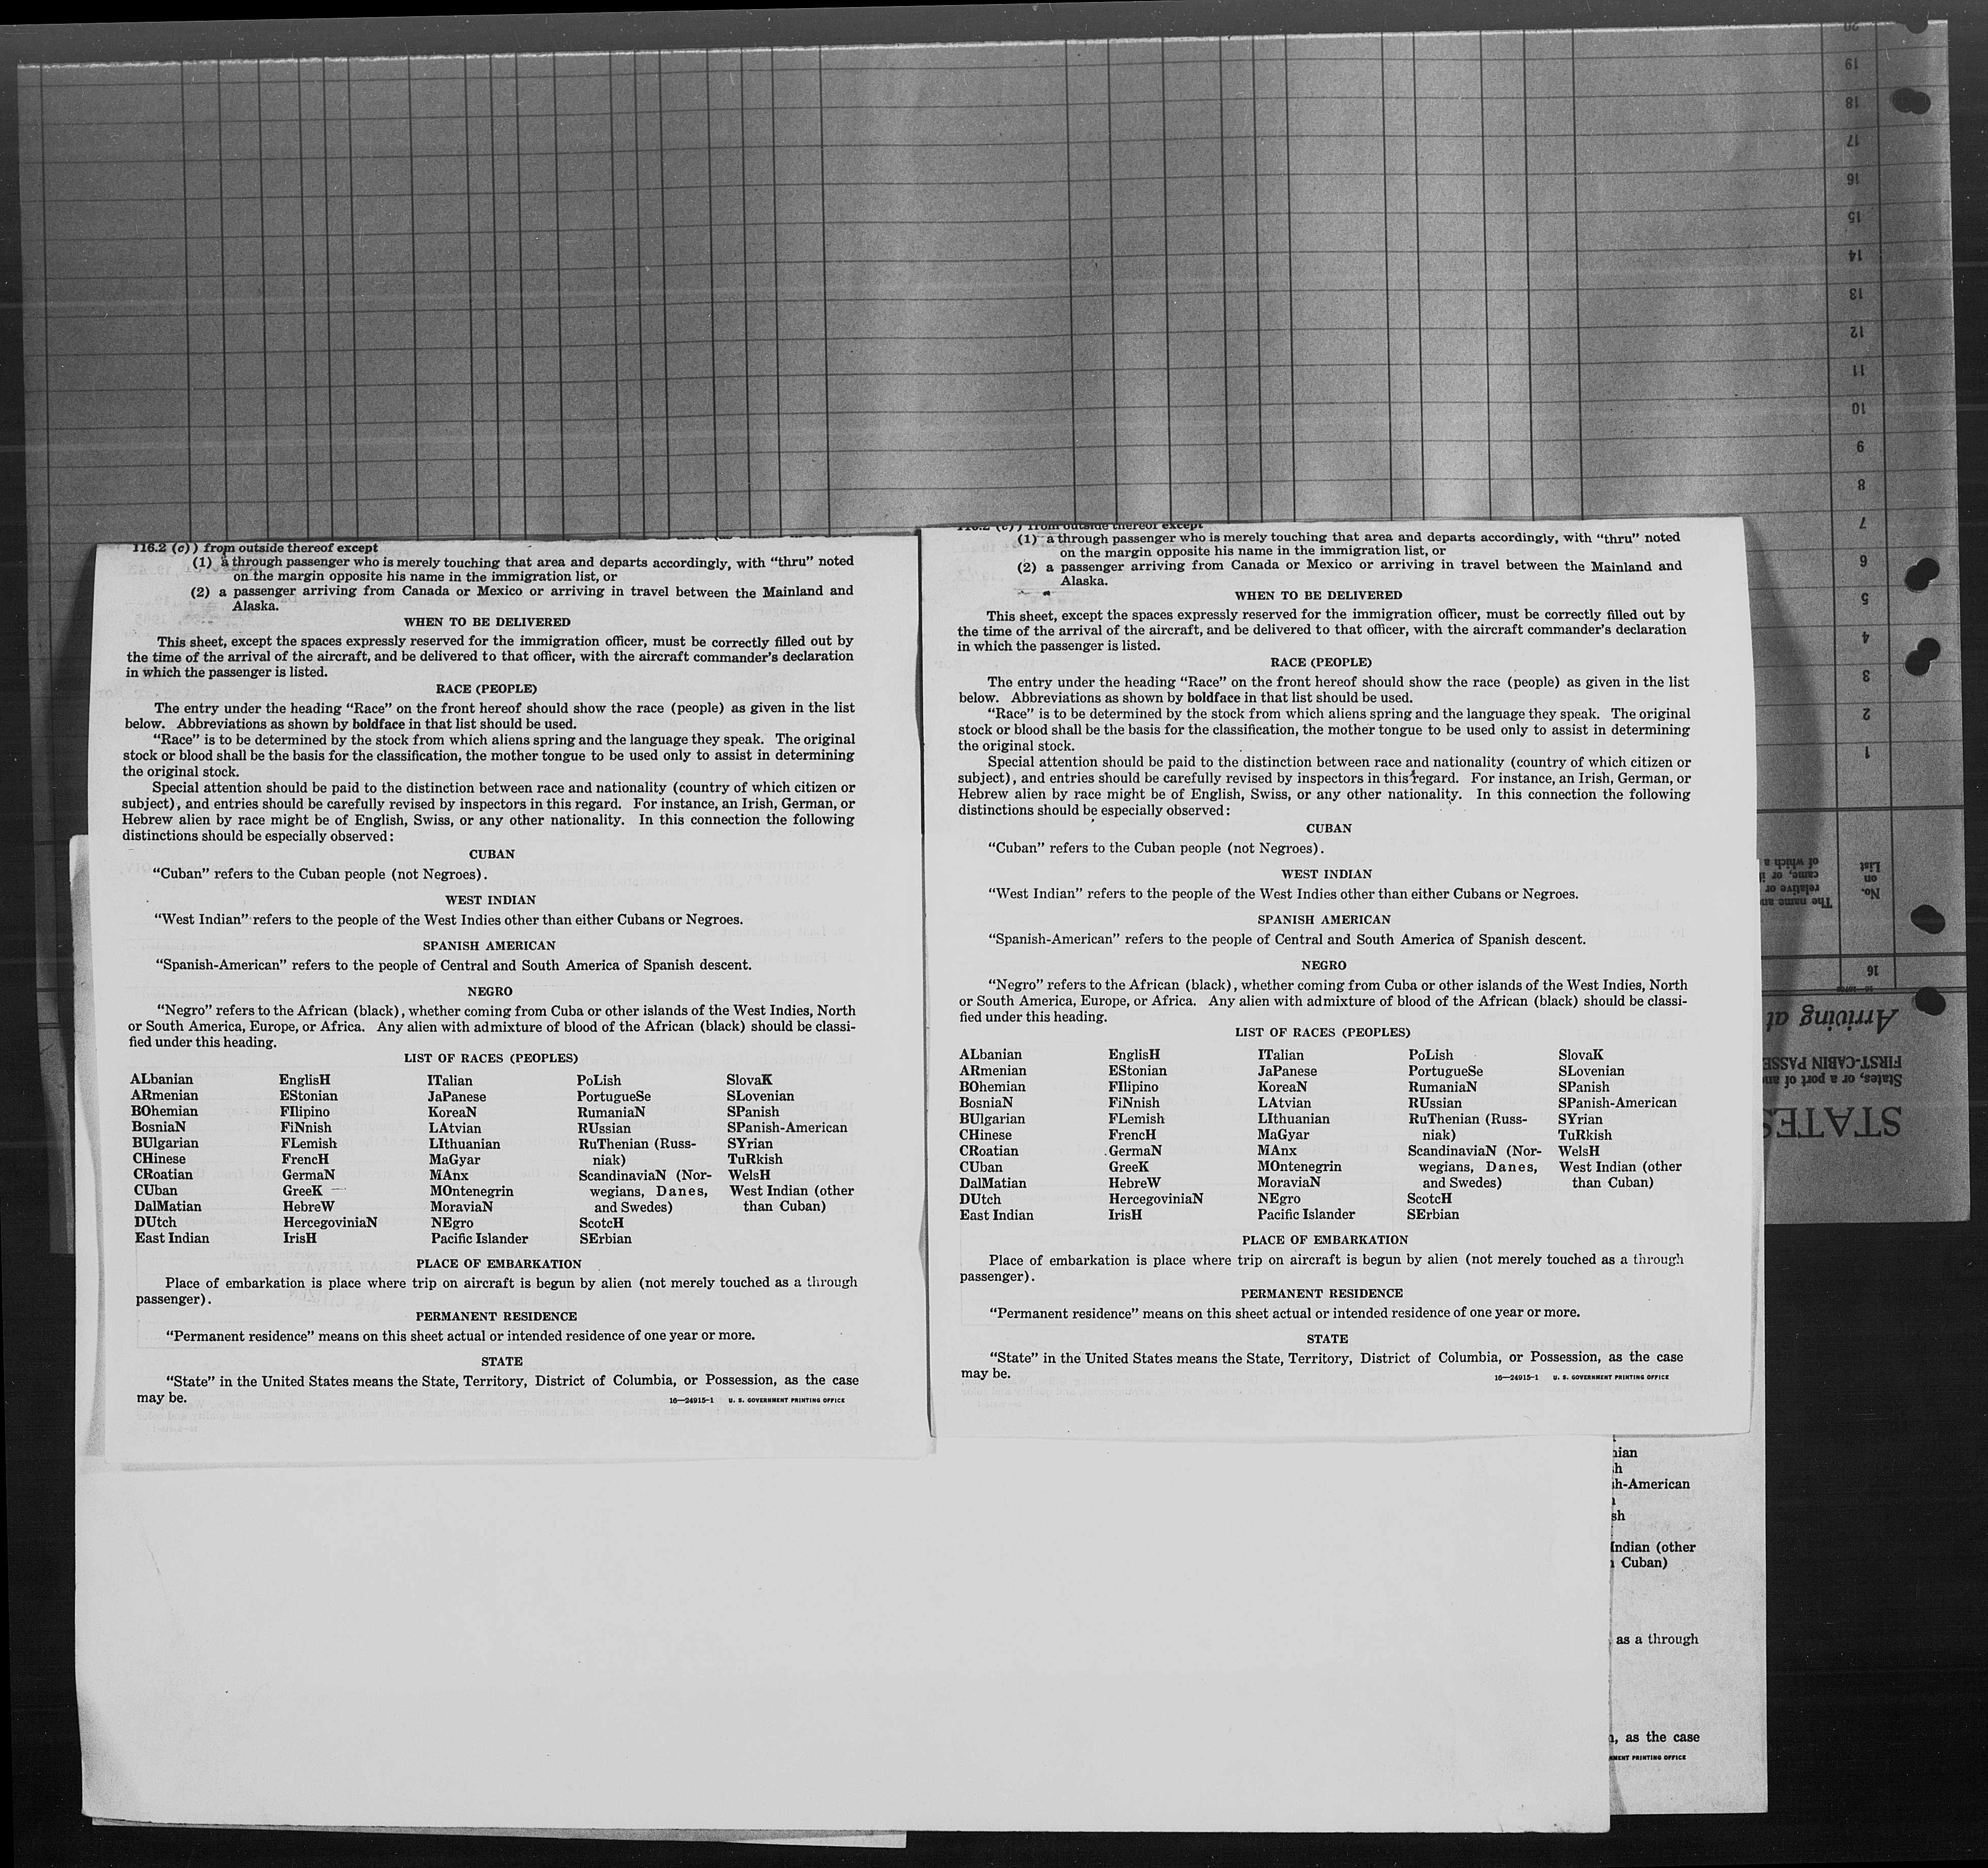 116.2 (c)) from outside thereof except
(1) a through passenger who is merely touching that area and departs accordingly, with “thru” noted
on the margin opposite his name in the immigration list, or
(2) a passenger arriving from Canada or Mexico or arriving in travel between the Mainland and
Alaska.
WHEN TO BE DELIVERED
This sheet, except the spaces expressly reserved for the immigration officer, must be correctly filled out by
the time of the arrival of the aircraft, and be delivered to that officer, with the aircraft commander’s declaration
in which the passenger is listed.
RACE (PEOPLE)
The entry under the heading “Race” on the front hereof should show the race (people) as given in the list
below. Abbreviations as shown by boldface in that list should be used.
“Race” is to be determined by the stock from which aliens spring and the language they speak. The original
stock or blood shall be the basis for the classification, the mother tongue to be used only to assist in determining
the original stock.
Special attention should be paid to the distinction between race and nationality (country of which citizen or
subject), and entries should be carefully revised by inspectors in this regard. For instance, an Irish, German, or
Hebrew alien by race might be of English, Swiss, or any other nationality. In this connection the following
distinctions should be especially observed:
CUBAN
“Cuban” refers to the Cuban people (not Negroes).
WEST INDIAN
“West Indian” refers to the people of the West Indies other than either Cubans or Negroes.
SPANISH AMERICAN
“Spanish-American” refers to the people of Central and South America of Spanish descent.
NEGRO
“Negro” refers to the African (black), whether coming from Cuba or other islands of the West Indies, North
or South America, Europe, or Africa. Any alien with admixture of blood of the African (black) should be classi-
fied under this heading.
LIST OF RACES (PEOPLES)
ALbanian EnglisH ITalian PoLish SlovaK
ARmenian EStonian JaPanese PortugueSe SLovenian
BOhemian FIlipino KoreaN RumaniaN SPanish
BosniaN FiNnish LAtvian RUssian SPanish-American
BUlgarian FLemish LIthuanian RuThenian (Russ- SYrian
CHinese FrencH MaGyar niak) TuRkish
CRoatian GermaN MAnx ScandinaviaN (Nor- WelsH
CUban GreeK MOntenegrin wegians, Danes, West Indian (other
DalMatian HebreW MoraviaN and Swedes) than Cuban)
DUtch HercegoviniaN NEgro ScotcH
East Indian IrisH Pacific Islander SErbian
PLACE OF EMBARKATION
Place of embarkation is place where trip on aircraft is begun by alien (not merely touched as a through
passenger).
PERMANENT RESIDENCE
“Permanent residence” means on this sheet actual or intended residence of one year or more.
STATE
“State” in the United States means the State, Territory, District of Columbia, or Possession, as the case
may be.
16—24915-1 U. S. GOVERNMENT PRINTING OFFICE
116.2 (c)) from outside thereof except
(1) a through passenger who is merely touching that area and departs accordingly, with “thru” noted
on the margin opposite his name in the immigration list, or
(2) a passenger arriving from Canada or Mexico or arriving in travel between the Mainland and
Alaska.
WHEN TO BE DELIVERED
This sheet, except the spaces expressly reserved for the immigration officer, must be correctly filled out by
the time of the arrival of the aircraft, and be delivered to that officer, with the aircraft commander’s declaration
in which the passenger is listed.
RACE (PEOPLE)
The entry under the heading “Race” on the front hereof should show the race (people) as given in the list
below. Abbreviations as shown by boldface in that list should be used.
“Race” is to be determined by the stock from which aliens spring and the language they speak. The original
stock or blood shall be the basis for the classification, the mother tongue to be used only to assist in determining
the original stock.
Special attention should be paid to the distinction between race and nationality (country of which citizen or
subject), and entries should be carefully revised by inspectors in this regard. For instance, an Irish, German, or
Hebrew alien by race might be of English, Swiss, or any other nationality. In this connection the following
distinctions should be especially observed:
CUBAN
“Cuban” refers to the Cuban people (not Negroes).
WEST INDIAN
“West Indian” refers to the people of the West Indies other than either Cubans or Negroes.
SPANISH AMERICAN
“Spanish-American” refers to the people of Central and South America of Spanish descent.
NEGRO
“Negro” refers to the African (black), whether coming from Cuba or other islands of the West Indies, North
or South America, Europe, or Africa. Any alien with admixture of blood of the African (black) should be classi-
fied under this heading.
LIST OF RACES (PEOPLES)
ALbanian EnglisH ITalian PoLish SlovaK
ARmenian EStonian JaPanese PortugueSe SLovenian
BOhemian FIlipino KoreaN RumaniaN SPanish
BosniaN FiNnish LAtvian RUssian SPanish-American
BUlgarian FLemish LIthuanian RuThenian (Russ- SYrian
CHinese FrencH MaGyar niak) TuRkish
CRoatian GermaN MAnx ScandinaviaN (Nor- WelsH
CUban GreeK MOntenegrin wegians, Danes, West Indian (other
DalMatian HebreW MoraviaN and Swedes) than Cuban)
DUtch HercegoviniaN NEgro ScotcH
East Indian IrisH Pacific Islander SErbian
PLACE OF EMBARKATION
Place of embarkation is place where trip on aircraft is begun by alien (not merely touched as a through
passenger).
PERMANENT RESIDENCE
“Permanent residence” means on this sheet actual or intended residence of one year or more.
STATE
“State” in the United States means the State, Territory, District of Columbia, or Possession, as the case
may be.
16—24915-1 U. S. GOVERNMENT PRINTING OFFICE
h-American
Indian (other
Cuban)
as a through
, as the case
PRINTING OFFICE
STATES
States, or a port of
FIRST-CABIN
Arriving at
16
No.
on
List
The name
relative or
came, or
of which a
1
2
3
4
5
6
7
8
9
10
11
12
13
14
15
16
17
18
19
20